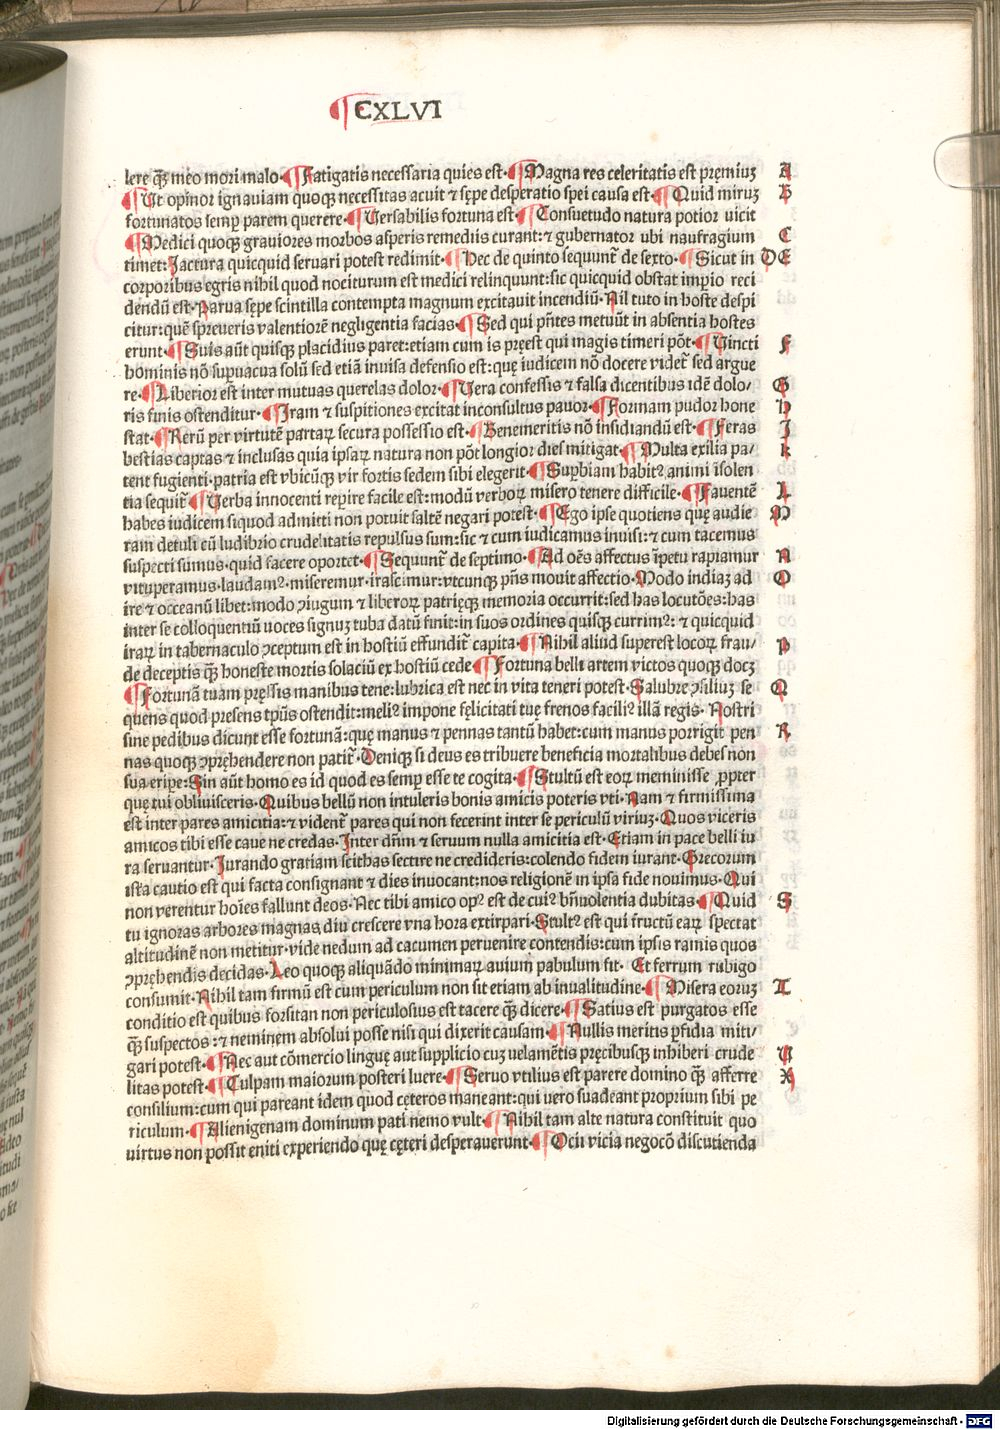 CXLVI
lere q̃ꝫ meo mori malo. Fatigatis necessaria quies est. Magna res celeritatis est premiuʒ A
Ut opinor ignauiam quoqꝫ necessitas acuit ⁊ sępe desperatio spei causa est. Quid miruʒ B
fortunatos semꝑ parem querere. Versabilis fortuna est. Consuetudo natura potior uicit
Medici quoqꝫ grauiores morbos asperis remediis curant: ⁊ gubernator ubi naufragium C
timet: Jactura quicquid seruari potest redimit. Hec de quinto sequunt᷑ de sexto. Sicut in D E
corporibus egris nihil quod nociturum est medici relinquunt: sic quicquid obstat imꝑio reci
dendū est. Parua sępe scintilla contempta magnum excitauit incendiū. Nil tuto in hoste despi
citur: quē spreueris valentiorē negligentia facias. Sed qui pn̄tes metuūt in absentia hostes
erunt. Suis aūt quisqꝫ placidius paret: etiam cum is pręest qui magis timeri pōt. Vincti F
hominis nō supuacua solū sed etiā inuisa defensio est: quę iudicem nō docere videt᷑ sed argue
re. Liberior est inter mutuas querelas dolor. Vera confessis ⁊ falsa dicentibus idē dolo/ G
ris finis ostenditur. Iram ⁊ suspitiones excitat inconsultus pauor. Formam pudor hone H
stat. Rerū per virtutē partaꝝ secura possessio est. Benemeritis nō insidiandū est. Feras I
bestias captas ⁊ inclusas quia ipsaꝝ natura non pōt longior dies mitigat. Multa exilia pa/ K
tent fugienti. patria est vbicūqꝫ vir fortis sedem sibi elegerit. Suꝑbiam habitꝰ animi isolen
tia sequit᷑. Verba innocenti reꝑire facile est: modū verboꝝ misero tenere difficile. Fauentē L
habes iudicem siquod admitti non potuit saltē negari potest. Ego ipse quotiens quę audie M
ram detuli cū ludibrio crudelitatis repulsus sum: sic ⁊ cum iudicamus inuisi: ⁊ cum tacemus
suspecti sumus. quid facere oportet. Sequunt᷑ de septimo. Ad oēs affectus īpetu rapiamur N
vituperamus. laudamꝰ. miseremur. irascimur: vtcunqꝫ pn̄s mouit affectio. Modo indiaʒ ad O
ire ⁊ occeanū libet: modo ꝯiugum ⁊ liberoꝝ patrięqꝫ memoria occurrit: sed has locutōes: has
inter se colloquentiū uoces signuʒ tuba datū finit: in suos ordines quisqꝫ currimꝰ: ⁊ quicquid
iraꝝ in tabernaculo ꝯceptum est in hostiū effundit᷑ capita. Nihil aliud superest locoꝝ frau/ P
de deceptis q̃ꝫ honeste mortis solaciū ex hostiū cede. Fortuna belli artem victos quoqꝫ docʒ
Fortunā tuam pręssis manibus tene: lubrica est nec in vita teneri potest. Salubre ꝯsiliuʒ se Q
quens quod presens tp̄us ostendit: meliꝰ impone fęlicitati tuę frenos faciliꝰ illā regis. Nostri
sine pedibus dicunt esse fortunā: quę manus ⁊ pennas tantū habet: cum manus porrigit pen R
nas quoqꝫ ꝯpręhendere non patit᷑. Deniqꝫ si deus es tribuere beneficia mortalibus debes non
sua eripe: Sin aūt homo es id quod es semꝑ esse te cogita. Stultū est eoꝝ meminisse ꝓpter
quę tui obliuisceris. Quibus bellū non intuleris bonis amicis poteris vti. Nam ⁊ firmissima
est inter pares amicitia: ⁊ vident᷑ pares qui non fecerint inter se periculū viriuʒ. Quos viceris
amicos tibi esse caue ne credas. Inter dn̄m ⁊ seruum nulla amicitia est. Etiam in pace belli iu
ra seruantur. Jurando gratiam scithas sectire ne credideris: colendo fidem iurant. Grecorum
ista cautio est qui facta consignant ⁊ dies inuocant: nos religionē in ipsa fide nouimus. Qui
non verentur hoīes fallunt deos. Nec tibi amico opꝰ est de cuiꝰ bn̄uolentia dubitas. Quid S
tu ignoras arbores magnas diu crescere vna hora extirpari. Stultꝰ est qui fructū eaꝝ spectat
altitudinē non metitur. vide nedum ad cacumen peruenire contendis: cum ipsis ramis quos
ꝯpręhendis decidas. Leo quoqꝫ aliquādo minimaꝝ auium pabulum fit. Et ferrum rubigo
consumit. Nihil tam firmū est cum periculum non sit etiam ab inualitudine. Misera eoruʒ T
conditio est quibus forsitan non periculosius est tacere q̃ꝫ dicere. Satius est purgatos esse
q̃ꝫ suspectos: ⁊ neminem absolui posse nisi qui dixerit causam. Nullis meritis ꝑfidia miti/
gari potest. Nec aut cōmercio linguę aut supplicio cuʒ uelamētis pręcibusqꝫ inhiberi crude V
litas potest. Culpam maiorum posteri luere. Seruo vtilius est parere domino q̃ꝫ afferre X
consilium: cum qui pareant idem quod ceteros maneant: qui uero suadeant proprium sibi pe
riculum. Alienigenam dominum pati nemo vult. Nihil tam alte natura constituit quo
virtus non possit eniti experiendo quę cęteri desperauerunt. Ocii vicia negocō discutienda
Digitalisierung gefördert durch die Deutsche Forschungsgemeinschaft - DFG